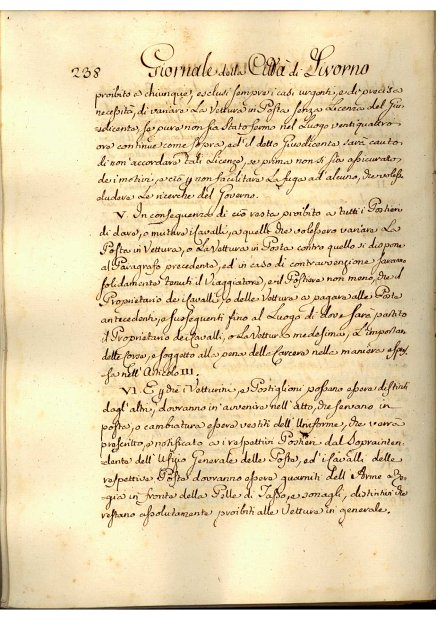 238 Giornale della Città di Livorno
proibito a chiunque, esclusi sempre i casi urgenti, e di precisa
necessità, di variare la Vettura in Posta senza Licenza del Giu-
dicente, se pure non sia stato fermo nel Luogo ventiquattro
ore continue come sopra, ed il detto Giusdicente sarà cauto
di non accordare tali Licenze, se prima non si sia assicurato
dei motivi, e ciò p non facilitare la fuga ad alcuno, che volesse
eludere le ricerche del Governo.
V. In conseguenza di ciò resta proibito a tutti i Postieri
di dare, o mutare i Cavalli, a quelli che volessero variare la
Posta in Vettura, o la Vettura in Posta contro quello si dispone
al Paragrafo precedente, ed in caso di contravvenzione saranno
solidamente tenuti il Viaggiatore, e il Postiere non meno, che il
Proprietario dei Cavalli, o della Vettura a pagare alle Poste
antecedenti, e susseguenti fino al Luogo di dove sarà partito
il Proprietario dei Cavalli, o la Vettura medesima, l'importare
delle Corse, e soggetto alla pena della Carcere nella maniera espres-
sa nell'Articolo III.
VI. E p che i Vetturini, e Postiglioni possano essere distinti
dagl'altri, dovranno in avvenire nell'atto, che servano in
posta, o cambiatura essere vestiti dell'Uniforme, che verrà
prescritto, e notificato a i respettivi Postieri dal Soprainten-
dente dell'Ufizio Generale delle Poste, ed i Cavalli delle
respettive Poste dovranno essere guarniti dell'Arme Re-
gia in fronte della Pelle di Tasso, e sonagli, distintivi che
restano assolutamente proibiti alle Vetture in generale.